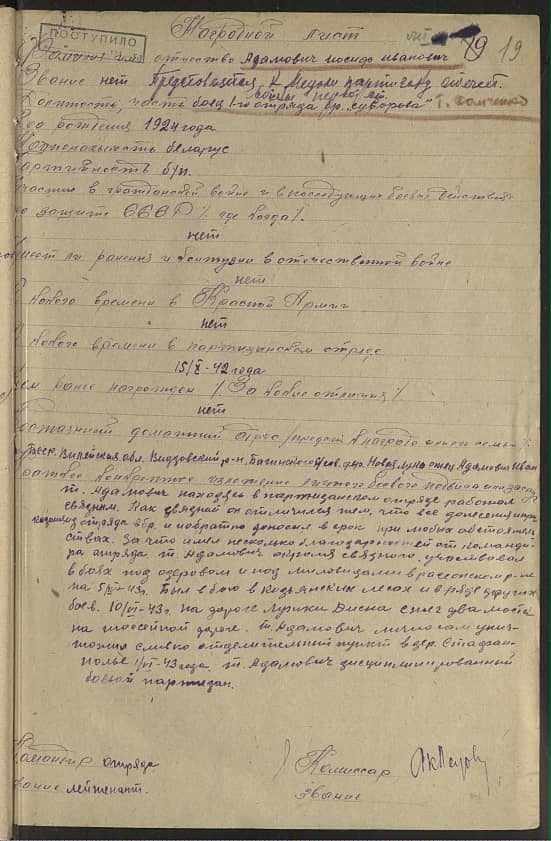 ПОСТУПИЛО
Наградной лист
19 19
отчество Адамович Иосиф Иванович
Звание нет Представляется к Медали партизану отечест.
войны первой ст.
Должность, часть боец 1-го отряда бр. "Суворова"
Год рождения 1924 года
Национальность беларус
партийность б/п.
участие в гражданской войне и в последующих боевых действиях
по защите СССР /. где когда /.
нет
имеет ли ранения и контузии в отечественной войне
нет
С какого времени в Красной Армии
нет
С какого времени в партизанском отряде
15/X-42 года
Чем ранее награжден /. За какие отличия /.
нет
Постоянный домашний адрес
БССР, Вилейская обл. Видзовский р-н, отец Адамович Иван
краткое конкретное изложение личного боевого подвига или заслуг
т. Адамович находясь в партизанском отряде работал
связным. Как связной он отличился тем, что все донесения
из отряда в бр. и обратно доносил в срок при любых обстоятель
ствах. За что имел несколько благодарностей от команди
ра отряда. т. Адамович окромя связного, участвовал
в боях под и под Миловидами в рассонском р-не
на 5/ -43г. Был в бою в Козьянских лесах и в ряде других
боев. 10/VI-43г. на дороге Лужки Дисна сжег два моста
на шоссейной дороге. т. Адамович лично сам унич-
тожил сливко отделительный пункт в дер.
1/VI-43 года т. Адамович дисциплинированный
боевой партизан.
Командир отряда Комиссар
звание лейтенант. звание